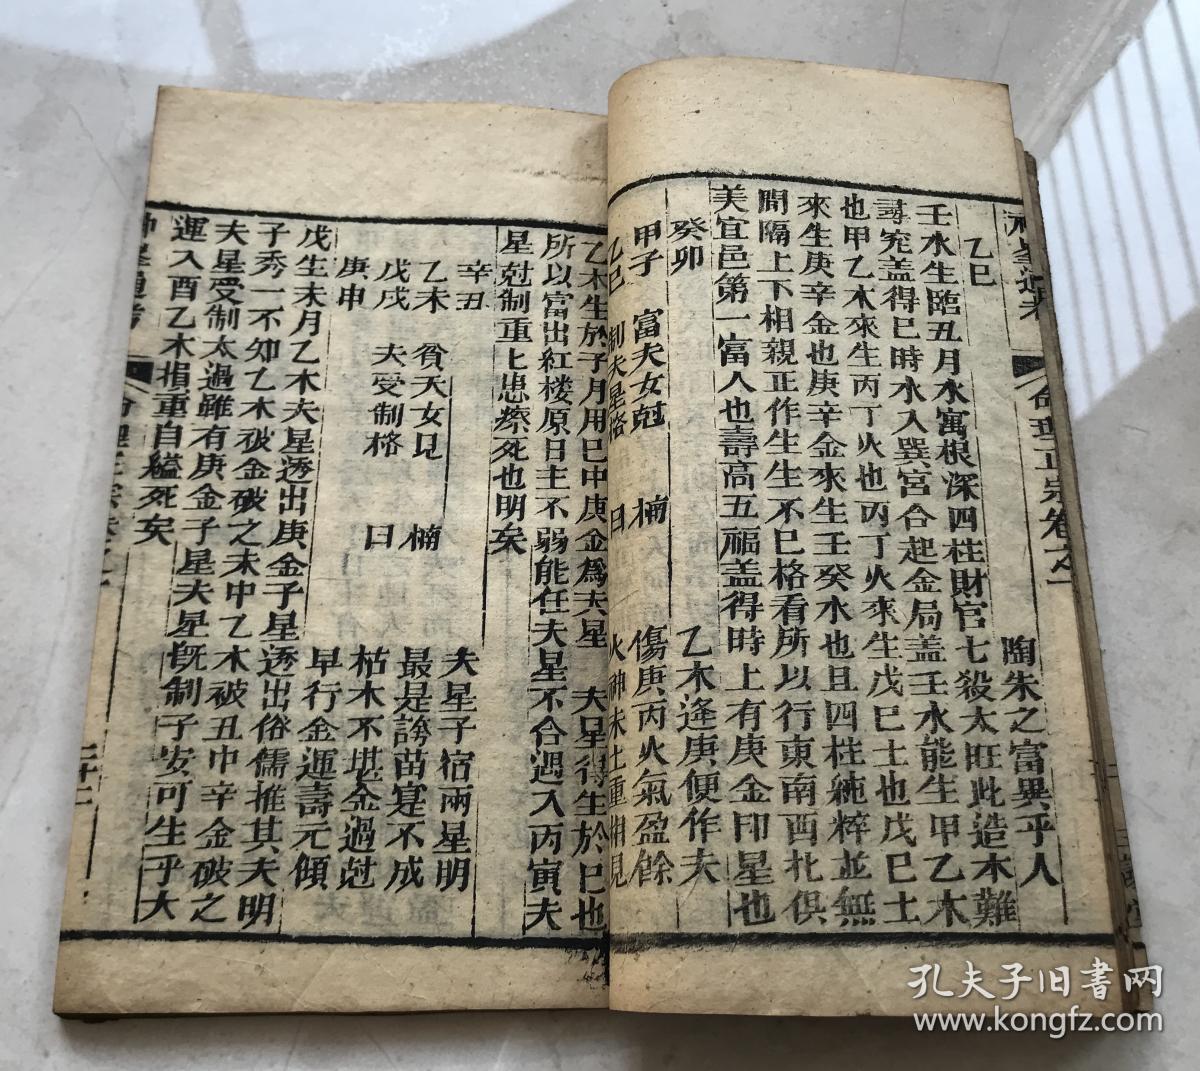 神峯通考 命理正宗卷之一
乙巳 陶朱之富異乎人
壬水生臨丑月水寓根深四柱財官七殺太旺此造本難
尋究盖得巳時水入巽宮合起金局盖壬水能生甲乙木
也甲乙木來生丙丁火也丙丁火來生戊巳土也戊巳土
來生庚辛金也庚辛金來生壬癸水也且四柱純粹並無
間隔上下相親正作生生不巳格看所以行東南西北俱
美宜邑第一富人也壽高五福盖得時上有庚金印星也
癸卯 乙木逢庚便作夫
甲子 富夫女尅 楠 傷庚丙火氣盈餘
乙巳 制夫星格 曰 火神未土重相見
乙木生於子月用巳中庚金爲夫星 夫星得生於巳也
所以富出紅楼原日主不弱能任夫星不合遇入丙寅夫
星尅制重七患瘵死也明矣
辛丑 夫星子宿兩星明
乙未 貧夫女見 楠 最是謗苗寔不成
戊戌 夫受制格 曰 枯木不堪金過尅
庚申 早行金運壽元傾
戊生未月乙木夫星透出庚金子星透出俗儒推其夫明
子秀一不知乙木破金破之未中乙木被丑中辛金破之
夫星受制太過雖有庚金子星夫星既制子安可生乎大
運入酉乙木損重自縊死矣
神峯通考 命理正宗卷之一
孔夫子旧書网
www.kongfz.com